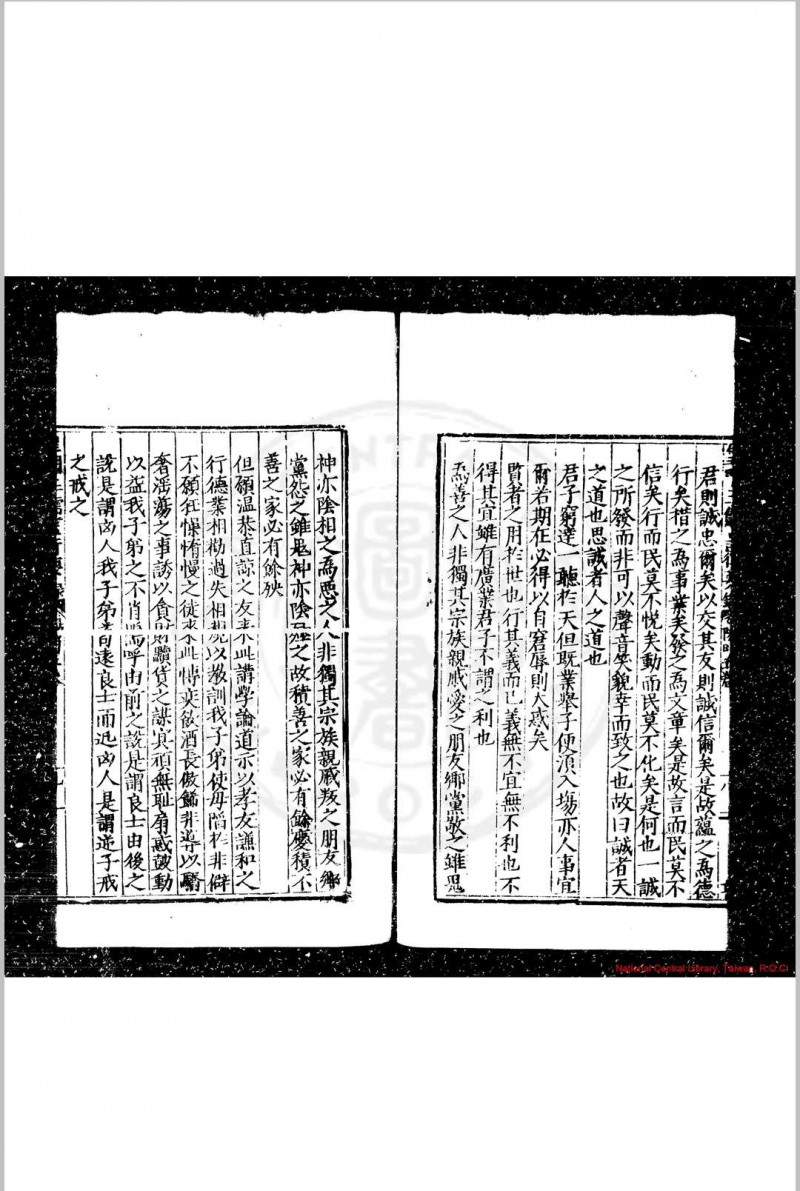 君則誠忠爾矣以交其友則誠信爾矣是故蘊之為德
行矣措之為事業矣發之為文章矣是故言而民莫不
信矣行而民莫不悅矣動而民莫不化矣是何也一誠
之所發而非可以聲音笑貌幸而致之也故曰誠者天
之道也思誠者人之道也
君子窮達一聽於天但既業舉子便湏入塲亦人事宜
爾若期在必得以自窘辱則大惑矣
賢者之用於世也行其義而已義無不宜無不利也不
得其宜雖有廣業君子不謂之利也
為善之人非獨其宗族親戚愛之朋友鄉黨敬之雖鬼
神亦陰相之為惡之人非獨其宗族親戚叛之朋友鄉
黨怨之雖鬼神亦陰殛之故積善之家必有餘慶積不
善之家必有餘殃
但願温恭直諒之友來此講學論道示以孝友謙和之
行德業相勸過失相規以教訓我子弟使毋陷於非僻
不願狂懆惰慢之徒來此博奕飲酒長傲飾非導以驕
奢淫蕩之事誘以貪財黷貨之謀冥頑無耻扇惑鼓動
以益我子弟之不肖嗚呼由前之說是謂良士由後之
說是謂凶人我子弟苟遠良士而近凶人是謂逆子戒
之戒之
National Central Library, Taiwan, R.O.C